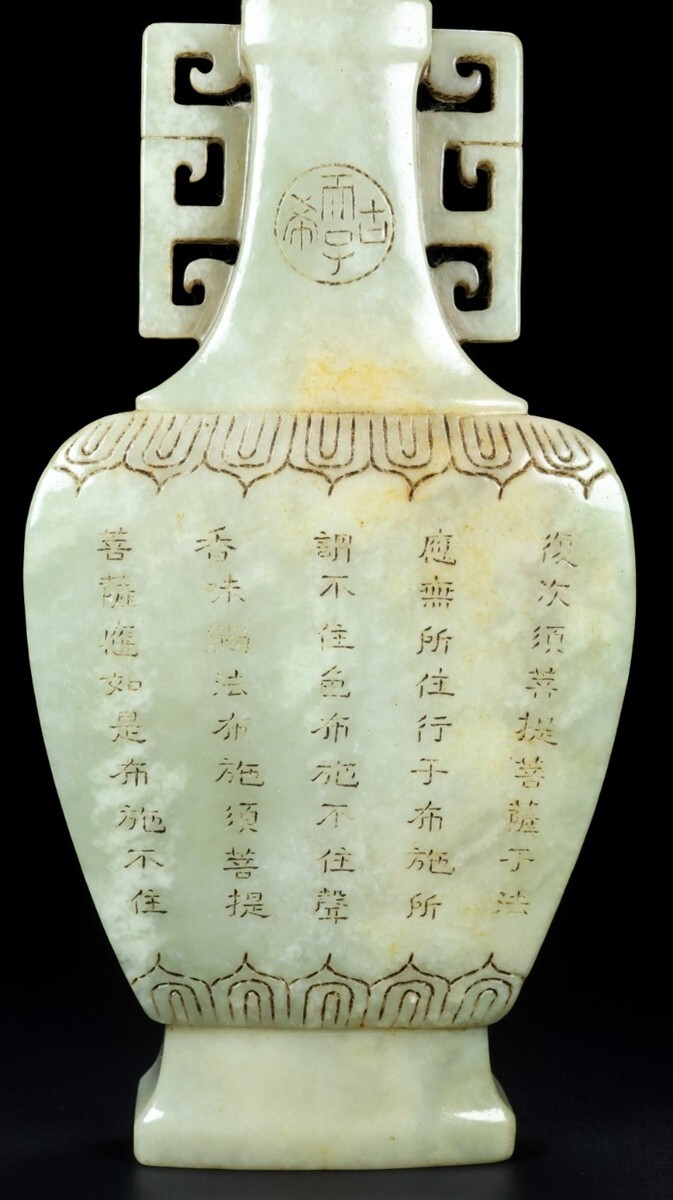 古希天子
復次須菩提菩薩于法
應無所住行于布施所
謂不住色布施不住聲
香味觸法布施須菩提
菩薩應如是布施不住